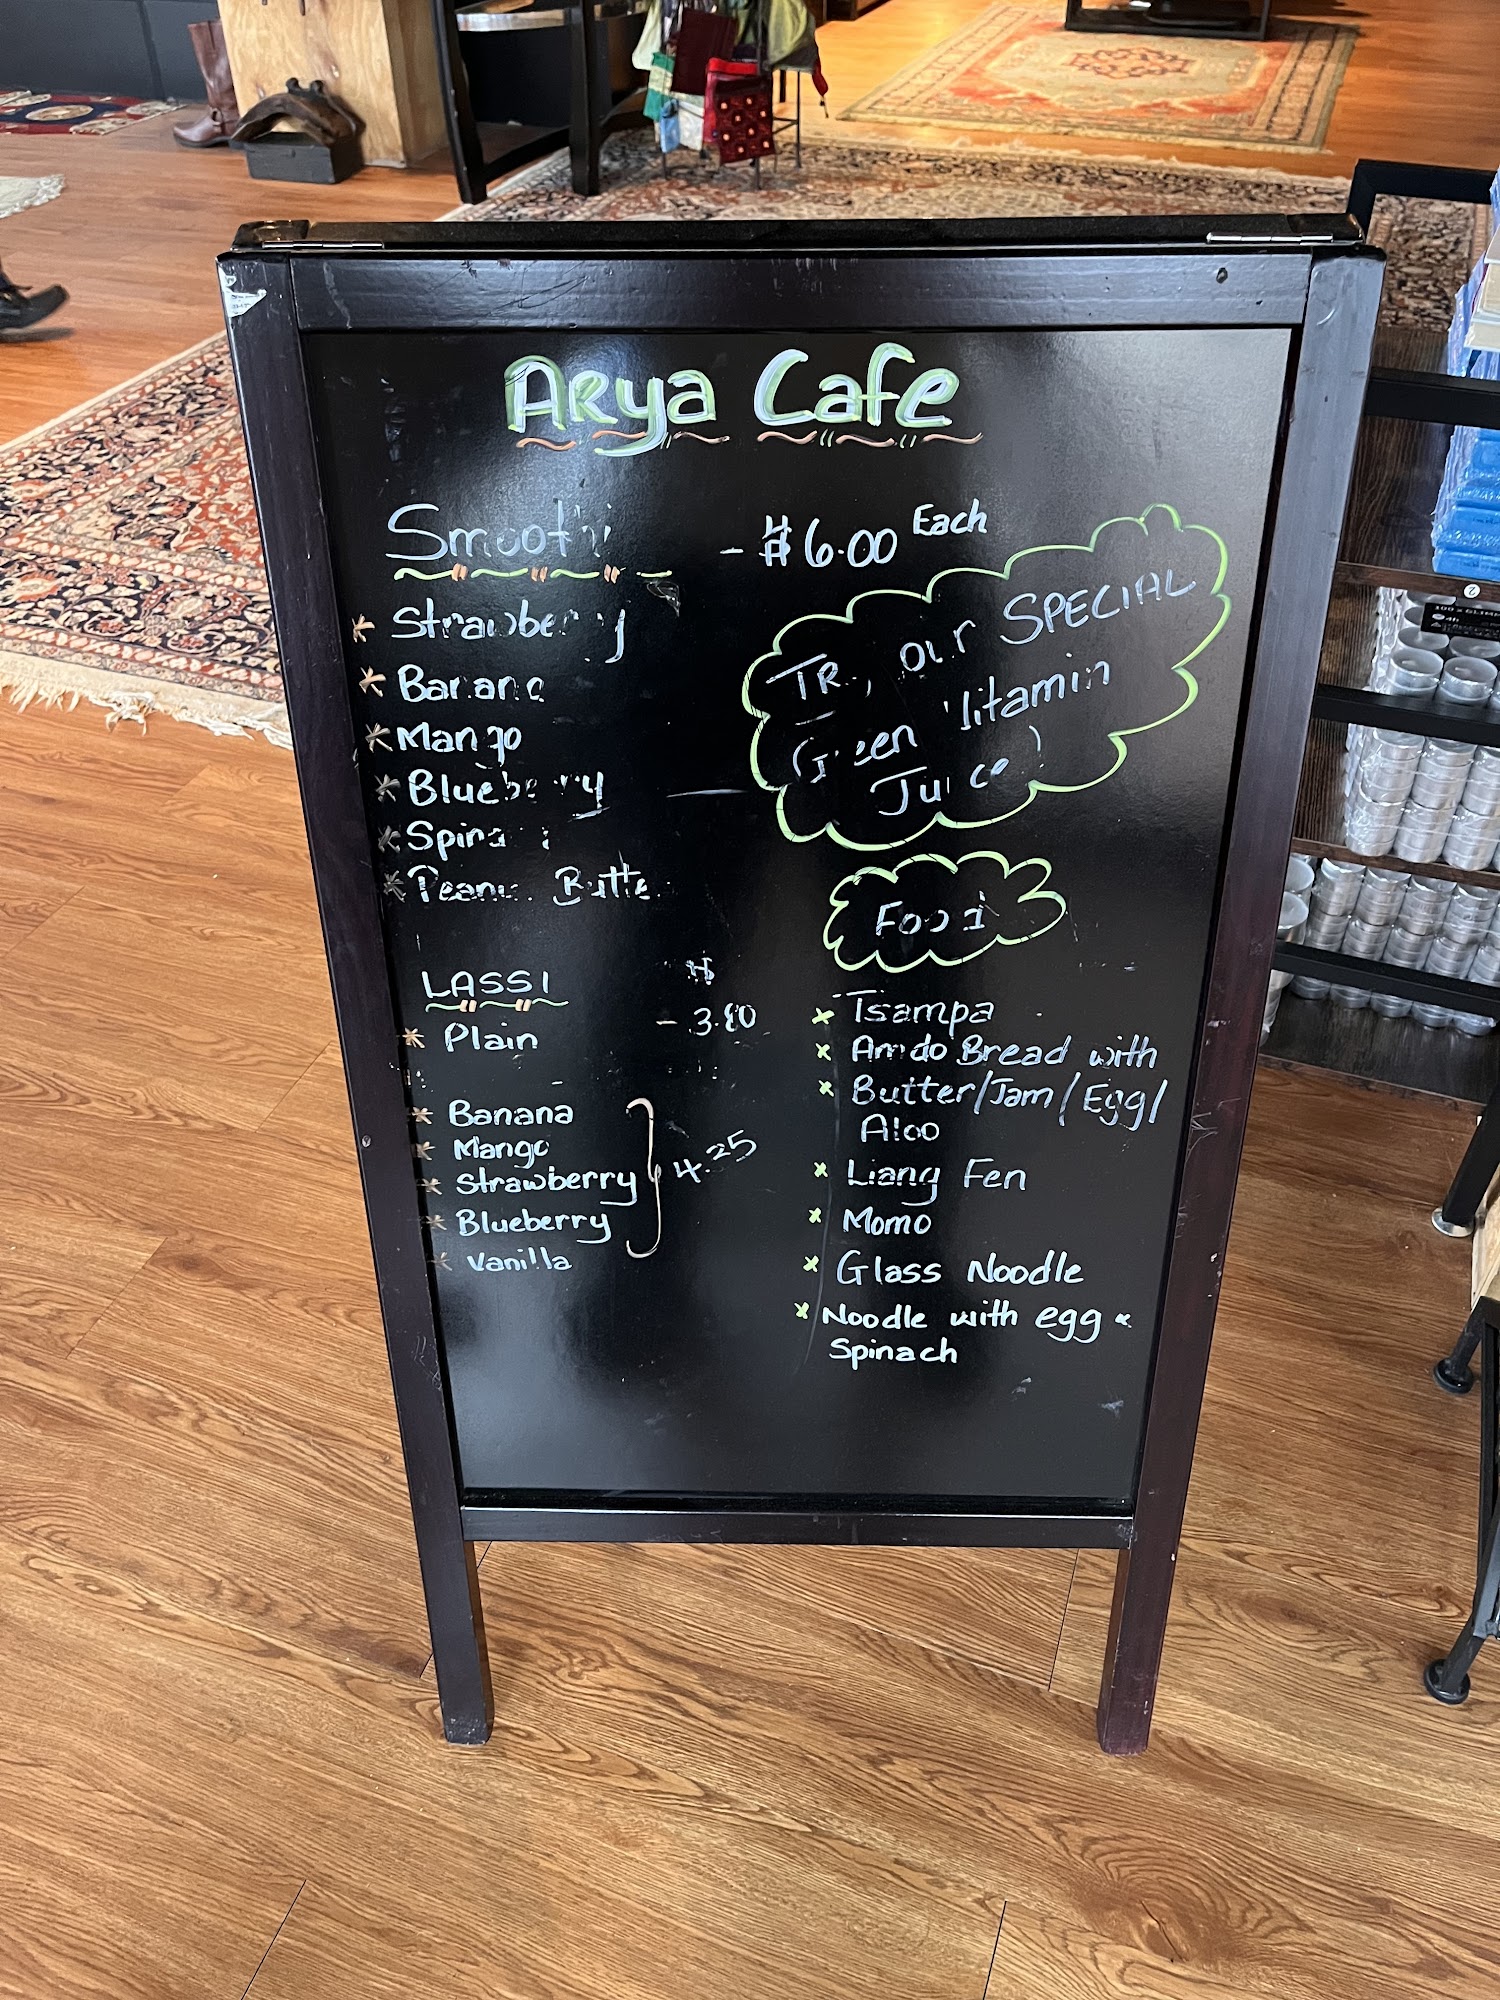 Arya Cafe
Smoothi - $6.00 Each
* Strawberry
* Banana
* Mango
* Blueberry
* Spina
* Peanut Butter
Try our SPECIAL
Green Vitamin
Juice)
LASSI $
* Plain - 3.80
* Banana
* Mango
* Strawberry 4.25
* Blueberry
* Vanilla
Food
x Tsampa
x Amdo Bread with
x Butter/Jam/Egg/
Aloo
x Liang Fen
x Momo
x Glass Noodle
x Noodle with egg &
Spinach